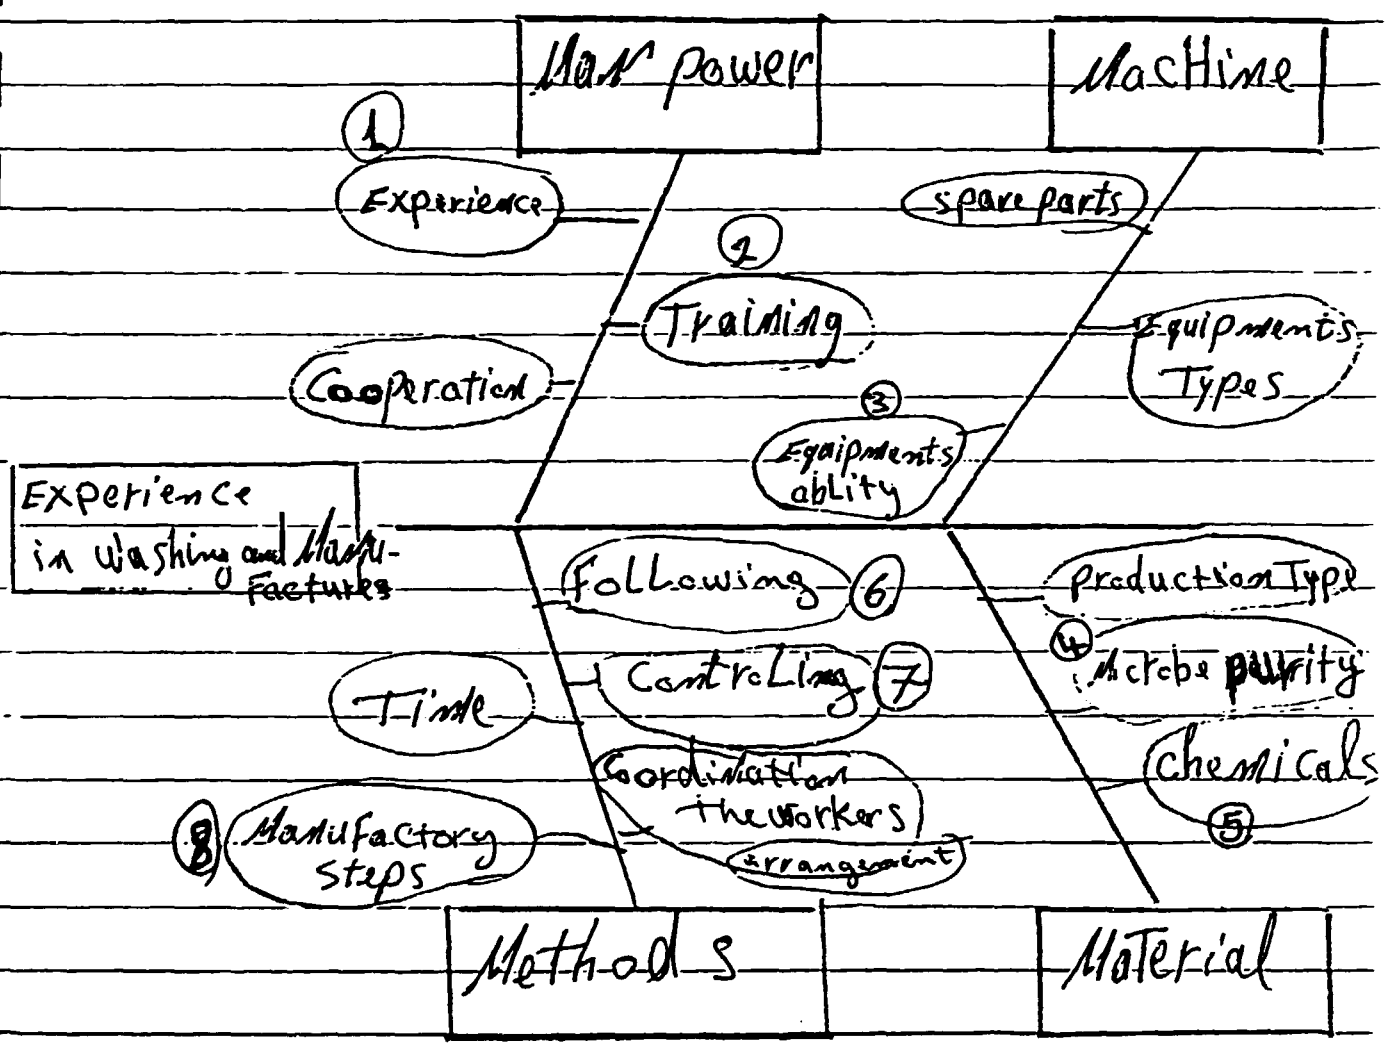 Man power
Machine
1
Experience
spare parts
2
Training
Equipments
Types
Cooperation
3
Equipments
ablity
Experience
in washing and Manu-
factures
Following
6
production Type
4
Microbe purity
Controling
7
Time
chemicals
5
Coordination
the workers
arrangement
8
Manufactory
steps
Methods
Material